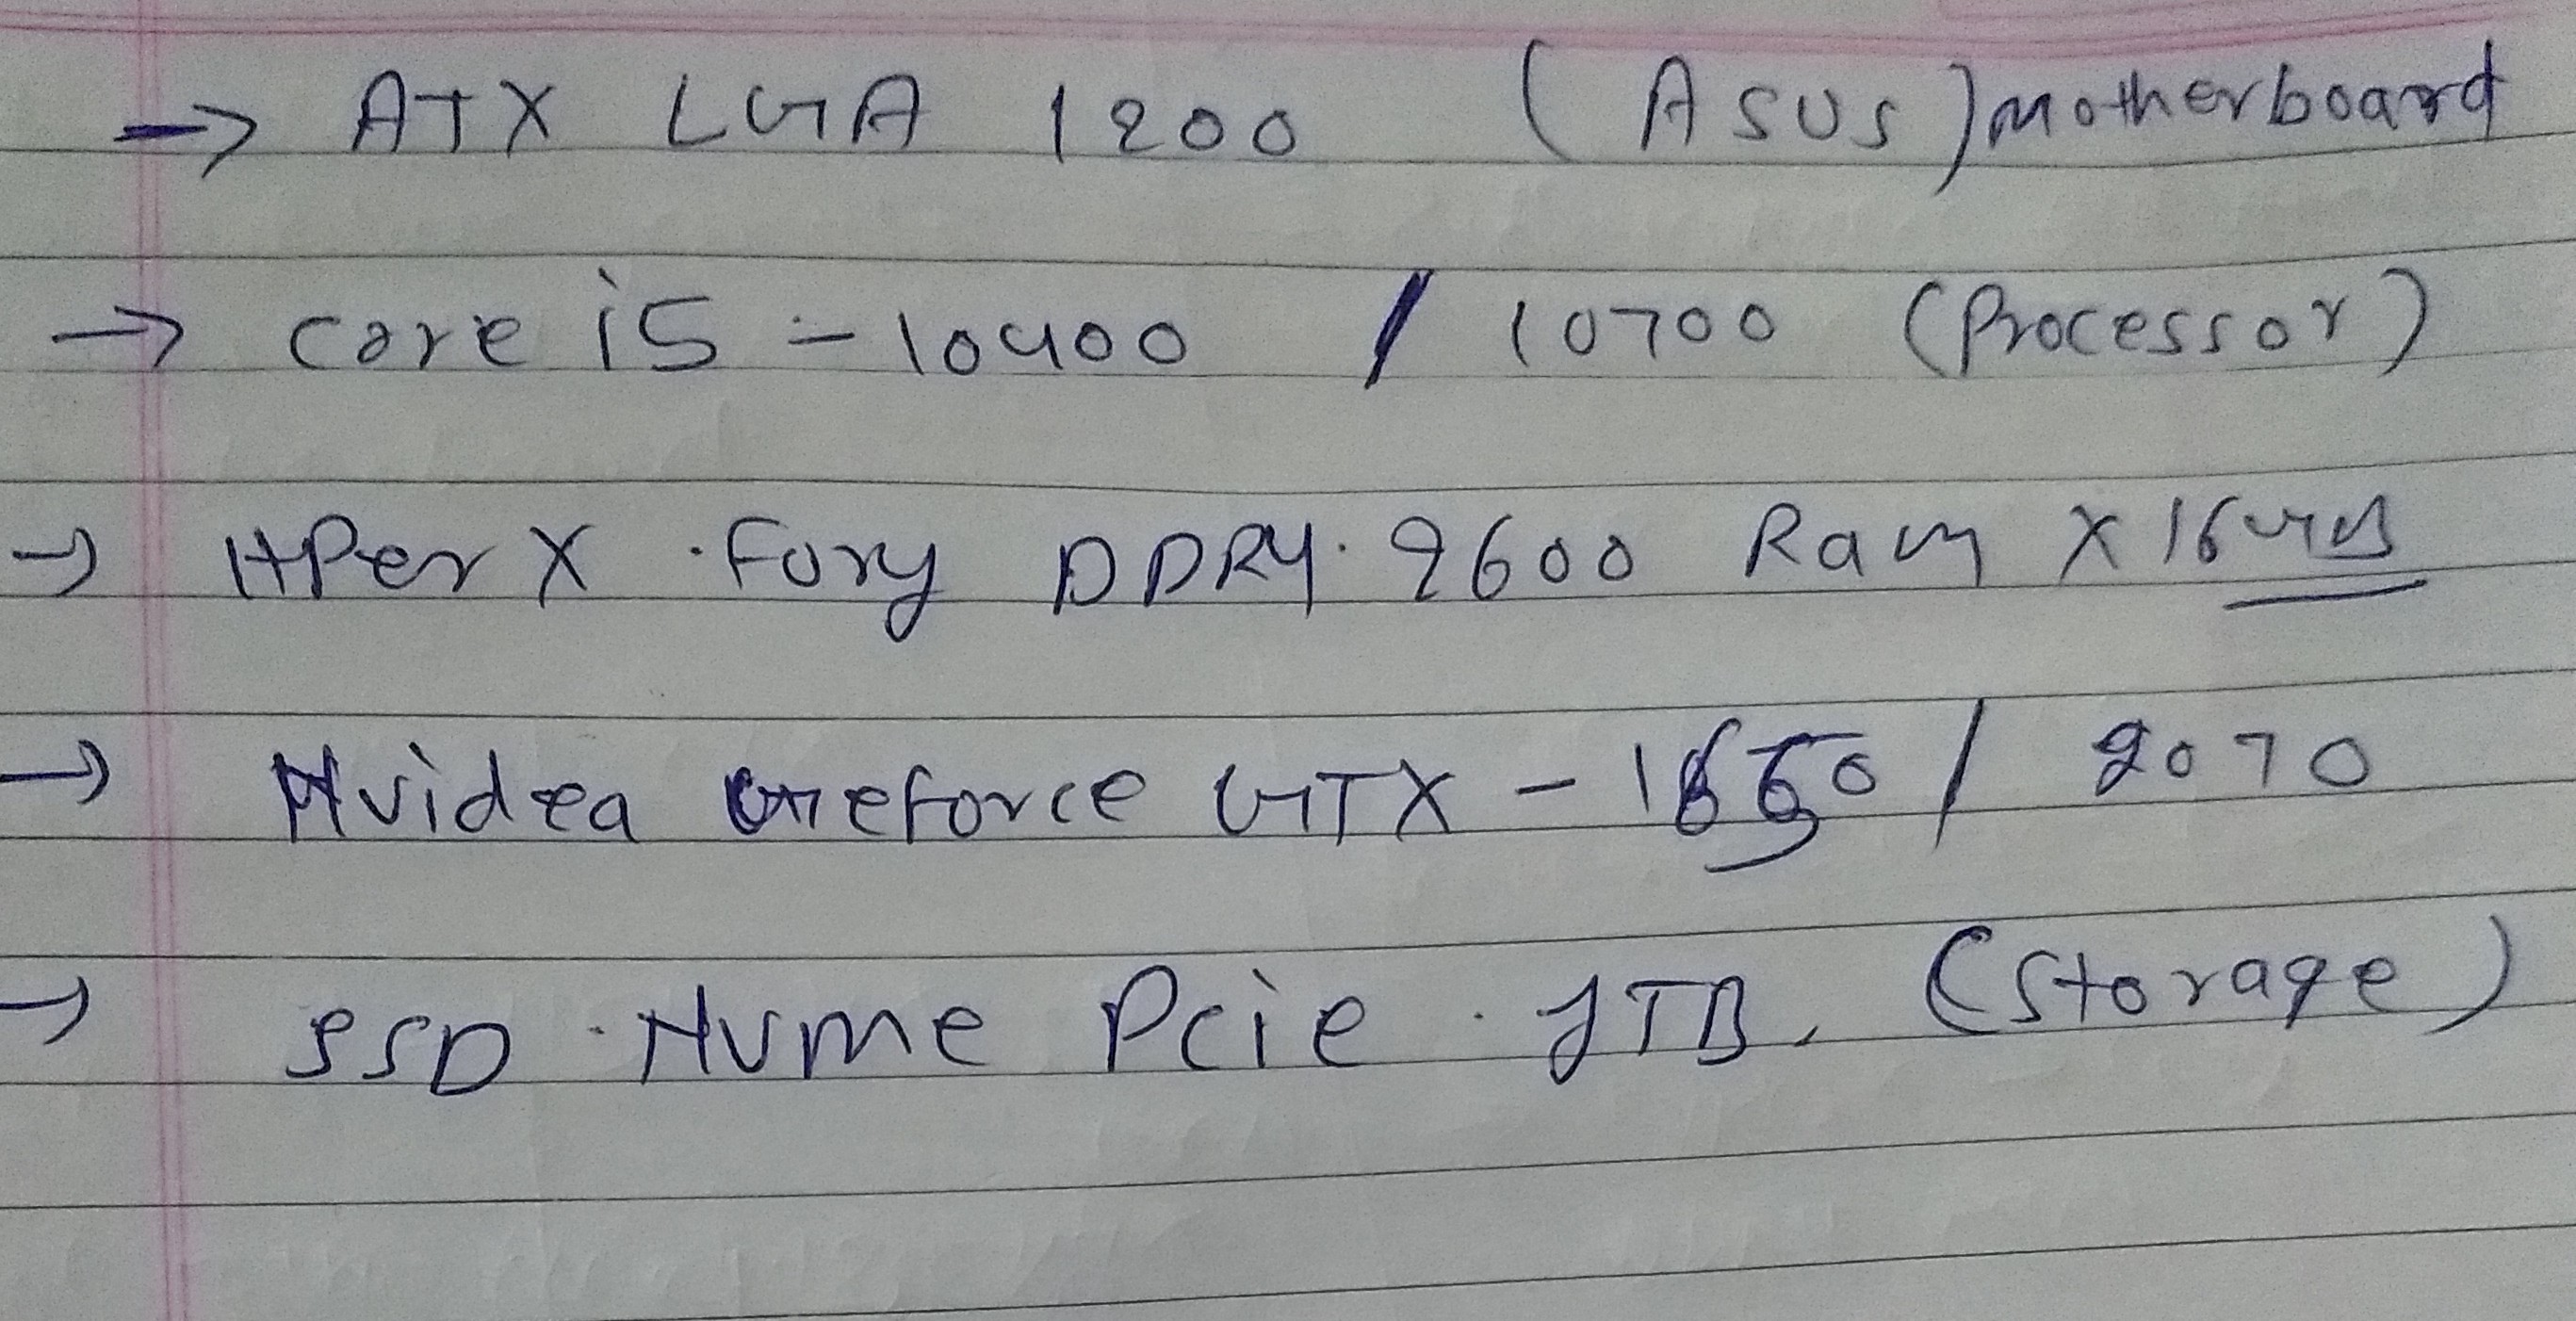 → ATX LGA 1200 (ASUS) motherboard
→ core i5 - 10400 / 10700 (Processor)
→ HPer X . Fory DDR4 . 2600 Ram X 16GB
→ Nvidea Geforce GTX - 1650 / 2070
→ SSD . Nvme Pcie . 1TB. (Storage)